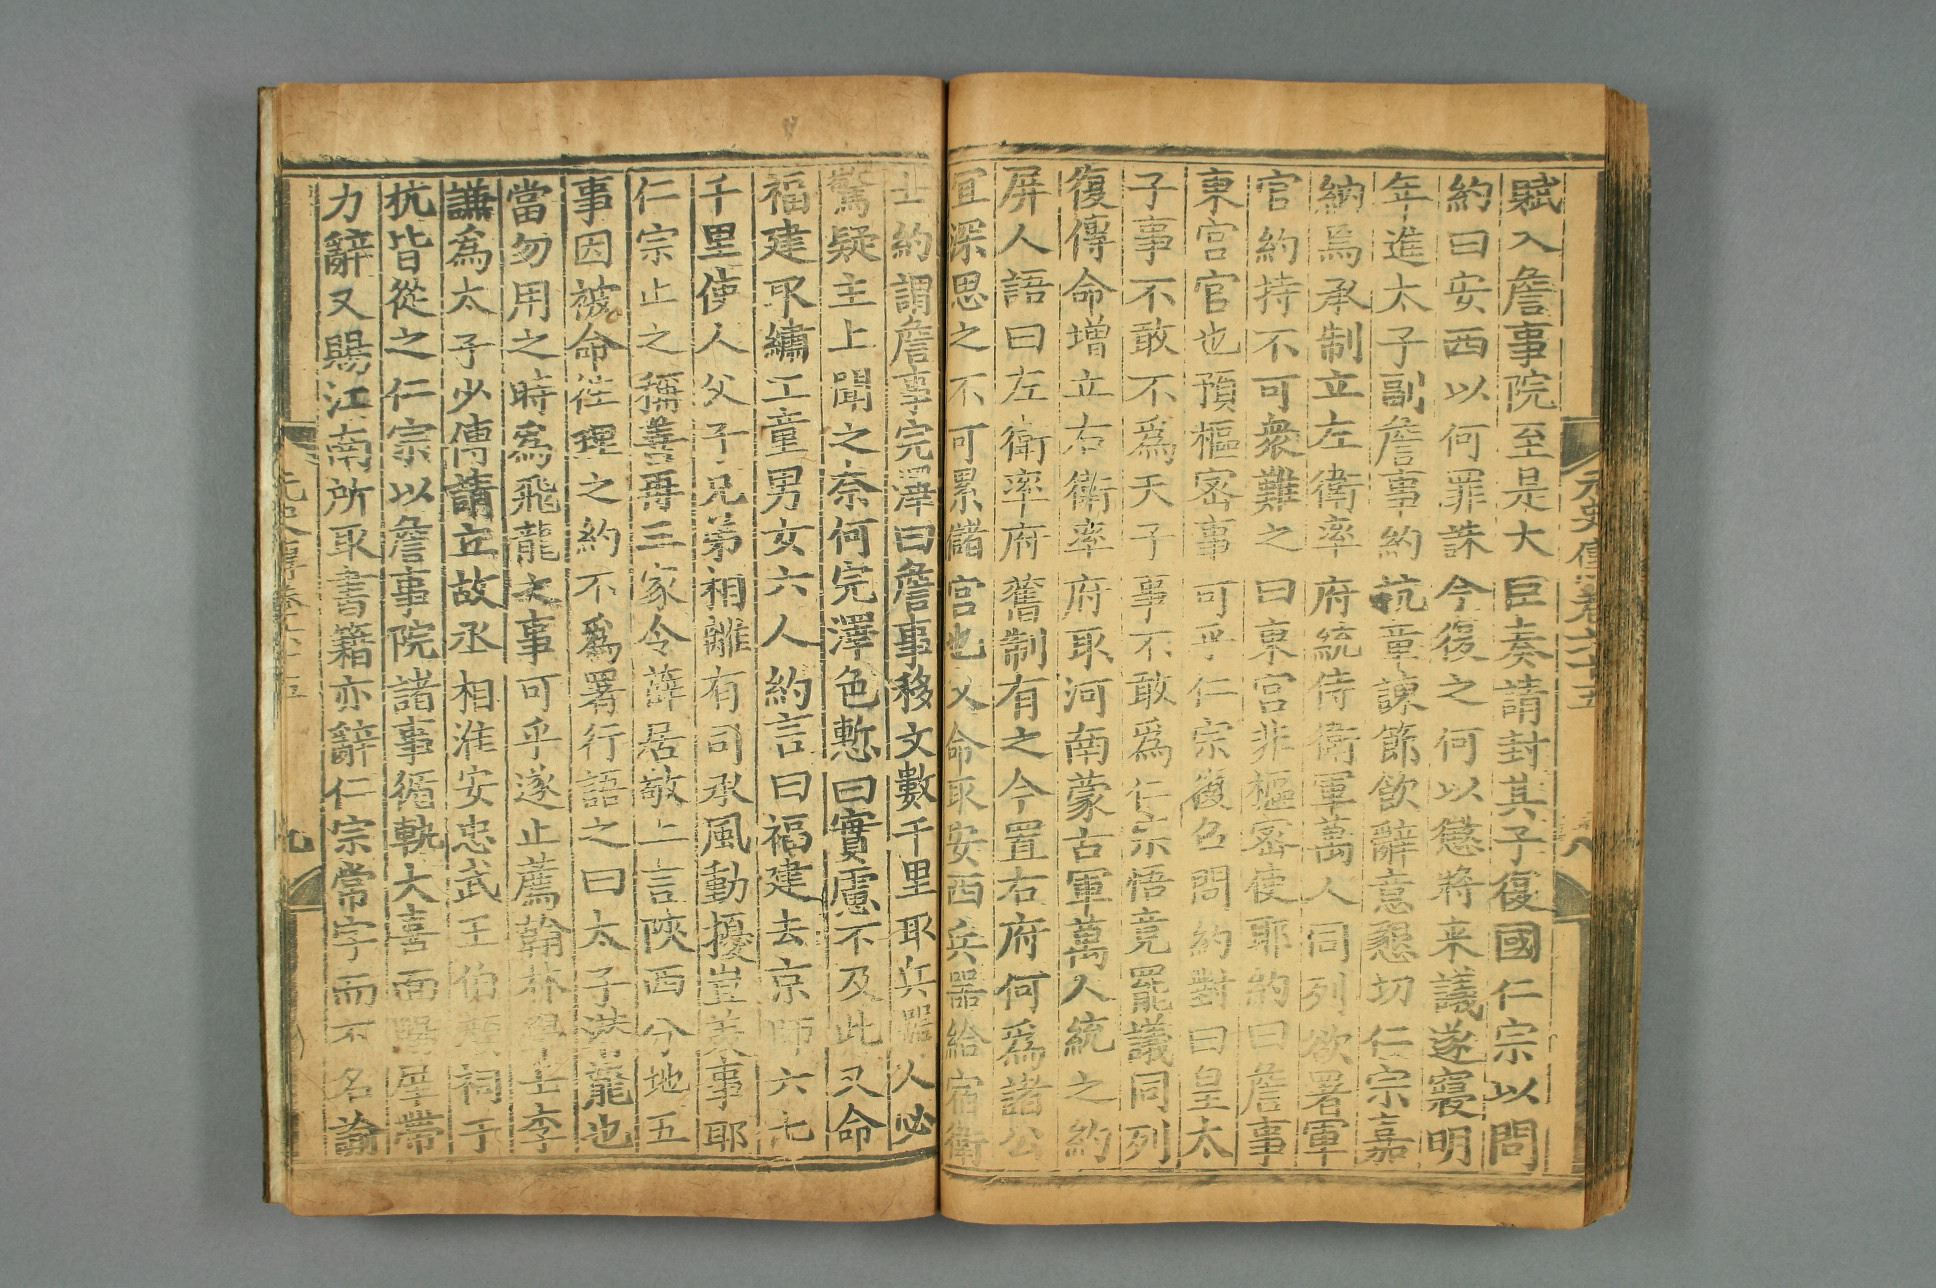 賦入詹事院至是大臣奏請封其子復國仁宗以問
約曰安西以何罪誅今復之何以懲將来議遂寢明
年進太子副詹事約抗章諫節飮辭意懇切仁宗嘉
納焉承制立左衛率府統侍衛軍萬人同列欲署軍
官約持不可衆難之曰東宮非樞密使耶約曰詹事
東宮官也預樞密事可乎仁宗復召問約對曰皇太
子事不敢不爲天子事不敢爲仁宗悟竟罷議同列
復傳命增立右衛率府取河南蒙古軍萬人統之約
屏人語曰左衛率府舊制有之今置右府何爲諸公
宜深思之不可累儲宮也又命取安西兵器給宿衛
士約謂詹事完澤曰詹事移文數千里取兵器人必
驚疑主上聞之奈何完澤色慙曰實慮不及此又命
福建取繡工童男女六人約言曰福建去京師六七
千里使人父子兄弟相離有司承風動擾豈美事耶
仁宗止之稱善再三家令薛居敬上言陝西分地五
事因被命往理之約不爲署行語之曰太子潛龍也
當勿用之時爲飛龍大事可乎遂止薦翰林學士李
謙爲太子少傅請立故丞相淮安忠武王伯顏祠于
杭皆從之仁宗以詹事院諸事循軌大喜面賜犀帶
力辭又賜江南所取書籍亦辭仁宗常字而不名諭
元史傳卷六十五
八
元史傳卷六十五
九